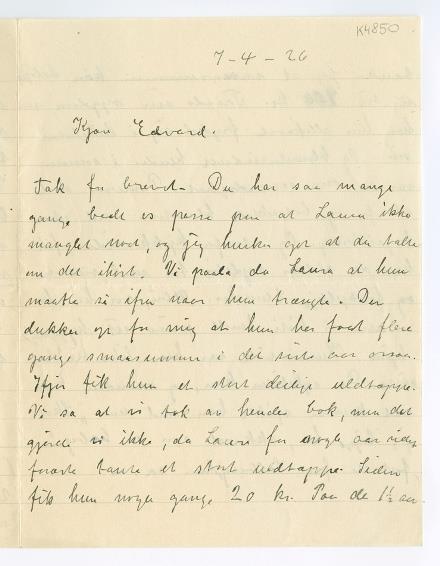 K4850
7-4-26
Kjære Edvard.
Tak for brevet. Du har saa mange
gange bedt os passe paa at Laura ikke
manglet noet, og jeg husker godt at du talte
om det ihøst. Vi paala da Laura at hun
maatte si ifra naar hun trængte. Der
dukker op for mig at hun har faat flere
gange smaasummer i det siste aar ogsaa.
Ifjor fik hun et stort deilig uldtæppe.
Vi sa at vi tok av hendes bok, men det
gjorde vi ikke, da Laura for nogle aar siden
forærte tante et stort uldtæppe. Siden
fik hun nogen gange 20 kr. Paa de 1½ aar